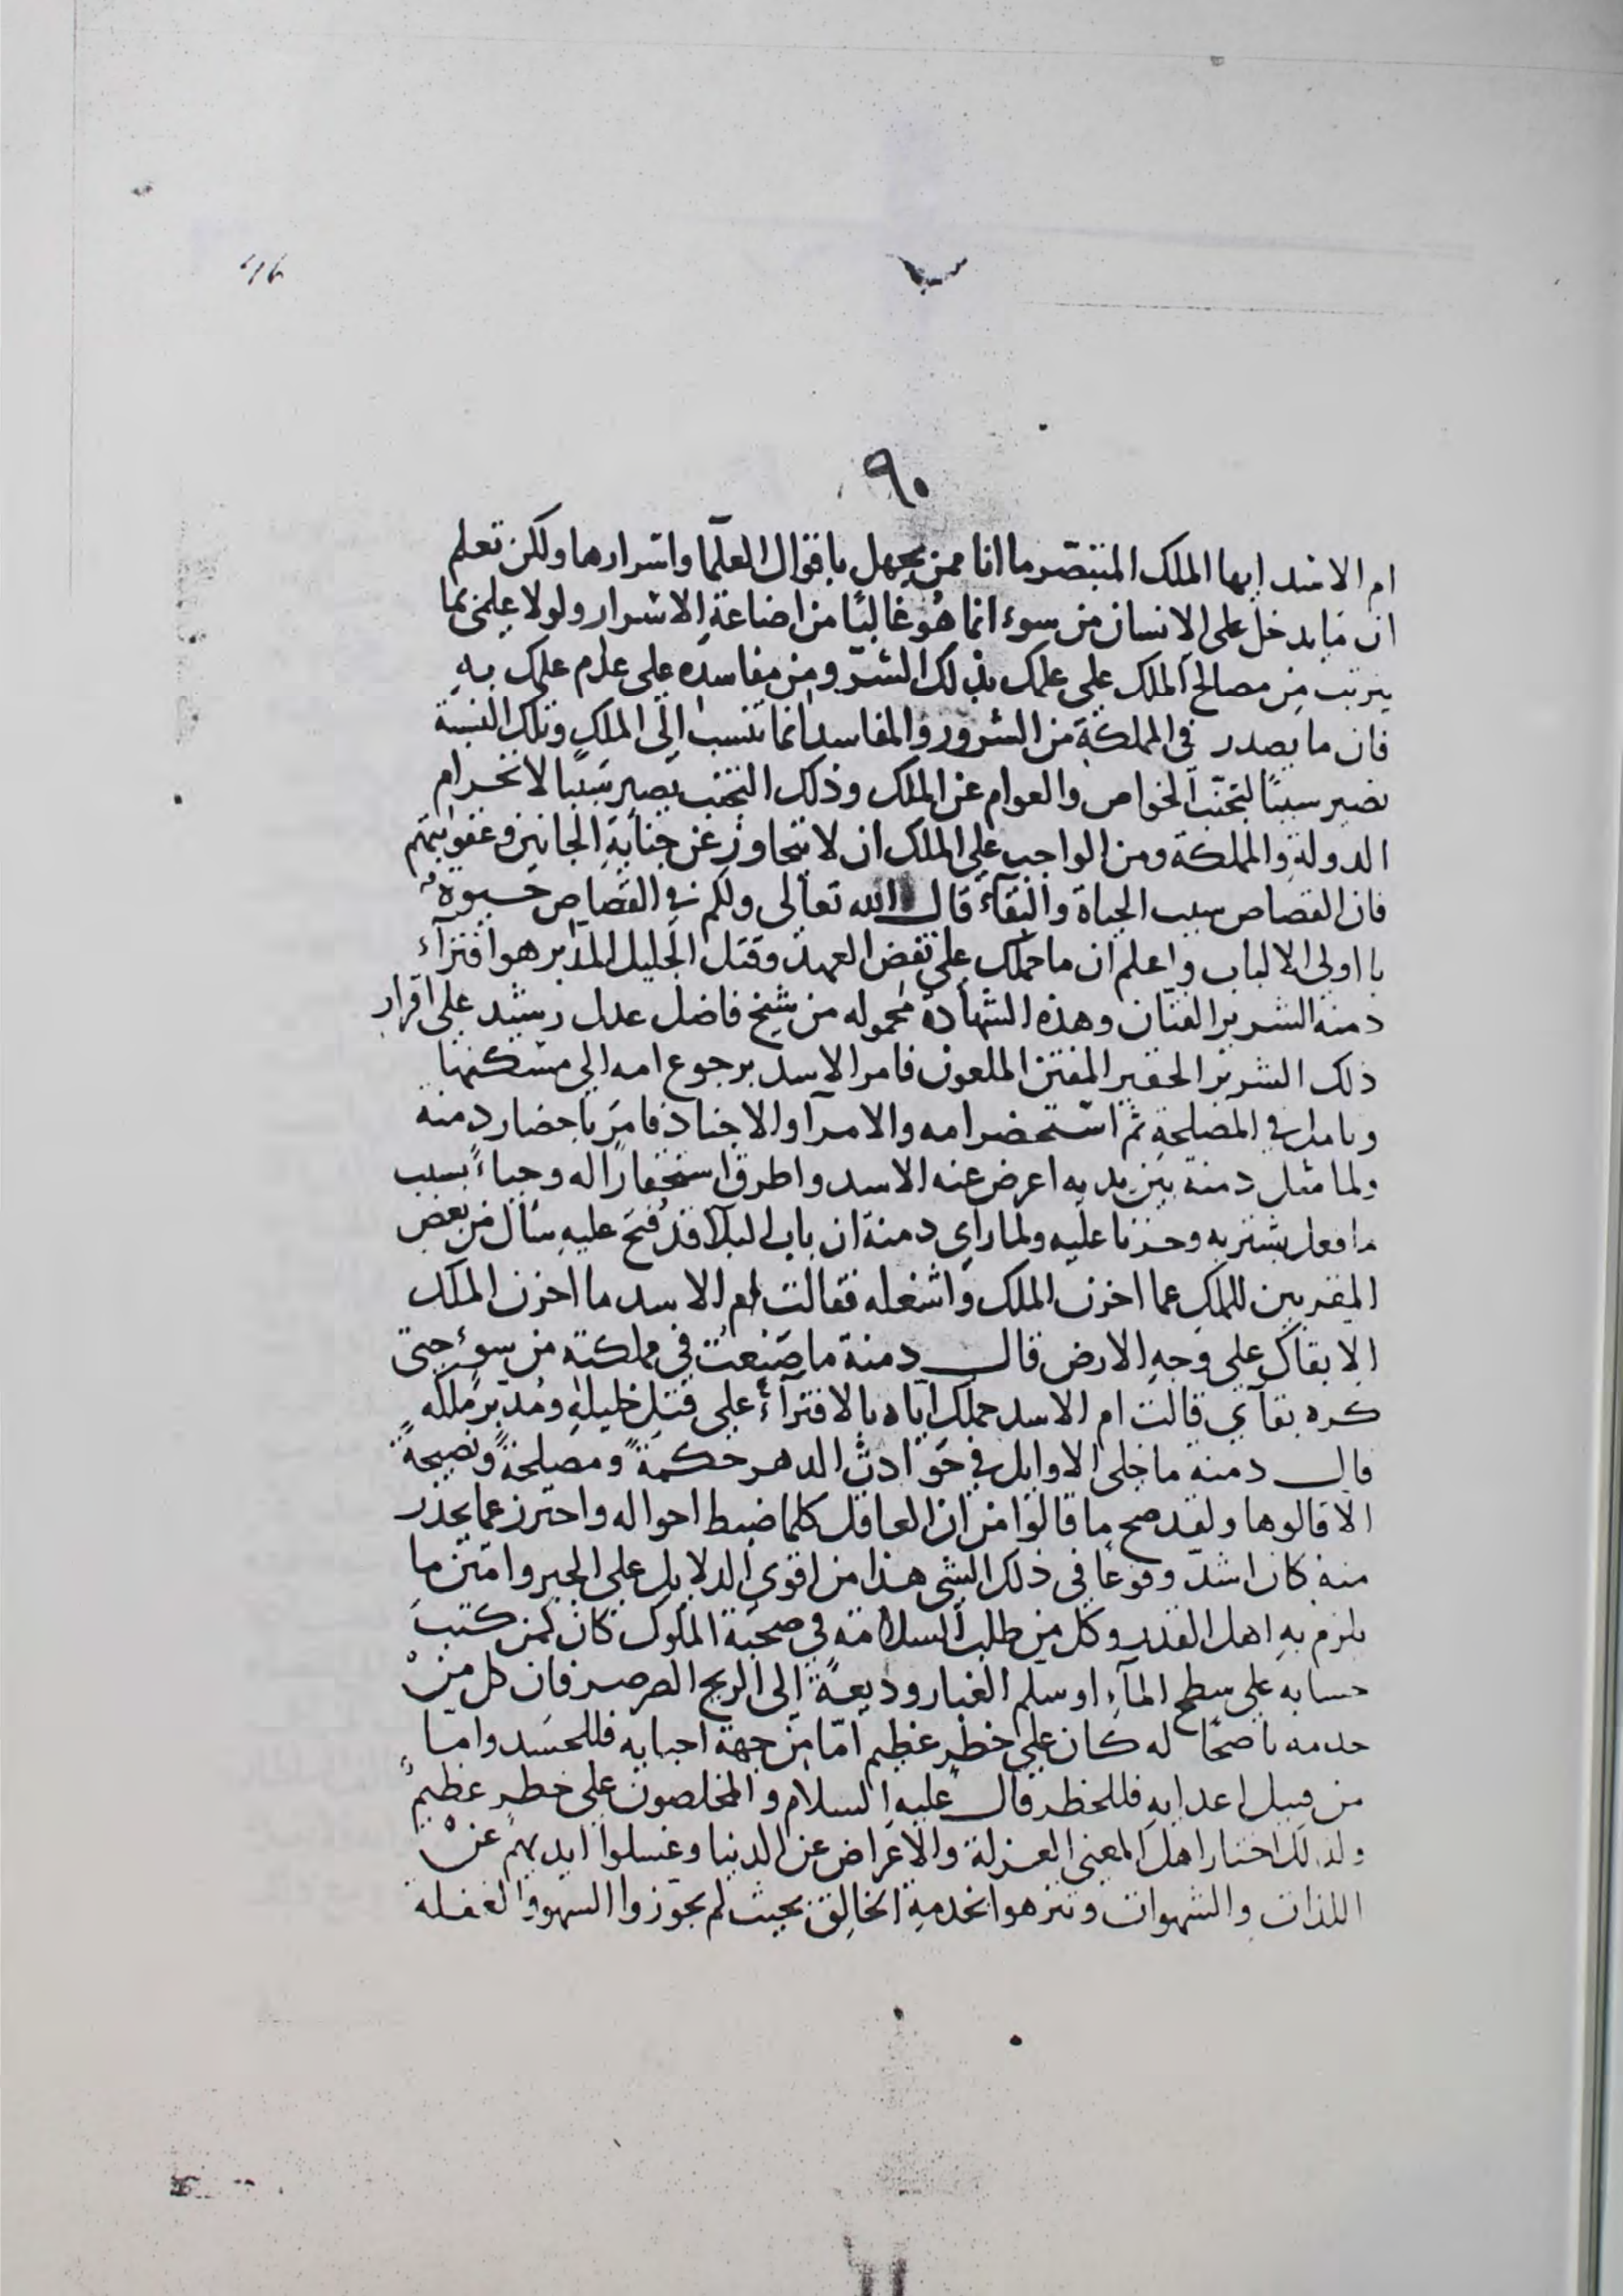 ٩٠
ام الاسد ايها الملك المتبصّر ما انا ممن يجهل باقوال العلما واسرارها ولكن تعلم
ان ما يدخل على الانسان من سوء انما هو غالبًا من اضاعة الاسرار ولولا علمى بما
يترتب من مصالح الملك على علمك بذلك الشر ومن مفاسده على عدم علمك به
فان ما يصدر فى المملكة من الشرور والمفاسد انما تنسب الى الملك وتلك النسبة
تصير سببًا لتجنّب الخواص والعوام عن الملك وذلك التجنب يصير سببًا لانخرام
الدولة والمملكة ومن الواجب على الملك ان لا يتجاوز عن جناية الجانين وعقوبتهم
فان القصاص سبب الحياة والبقآء قال الله تعالى ولكم فى القصاص حيوة
يا اولى الالباب واعلم ان ما حملك على نقض العهد وقتل الجليل المدبر هو افترآء
دمنه الشرير الفتان وهذه الشهادة محموله من شيخ فاضل عدل رشيد على اقرار
ذلك الشرير الحقير المفتن الملعون فامر الاسد برجوع امه الى مسكنها
وتامل فى المصلحة ثم استحضر امه والامرآ والاجناد فامر باحضار دمنه
ولما مثل دمنة بين يديه اعرض عنه الاسد واطرق استحقارًا له وحياءً بسبب
ما فعل بشتربه وحزنا عليه ولما راى دمنة ان باب البلآ قد فتح عليه سأل من بعض
المقربين للملك عما احزن الملك واشغله فقالت ام الاسد ما احزن الملك
الا بقاك على وجه الارض قال دمنة ما صنعت فى مملكته من سوءٍ حتى
كره بقآي قالت ام الاسد حملك اياه بالافترآء على قتل خليله ومدبر ملكه
قال دمنه ما خلى الاوايل فى حوادث الدهر حكمةً ومصلحةً ونصيحةً
الا قالوها ولقد صح ما قالوا من ان العاقل كلما ضبط احواله واحترز عما يحذر
منه كان اشد وقوعًا فى ذلك الشى هذا من اقوى الدلايل على الجبر وامتن ما
يلزم به اهل القدر وكل من طلب السلامة فى صحبة الملوك كان كمن كتب
حسابه على سطح المآء او سلم الغبار وديعةً الى الريح الصرصر فان كل من
خدمه ناصحًا له كان على خطر عظيم امّا من جهة احبابه فللحسد وامّا
من قبيل اعدايه فللخطر قال عليه السلام والمخلصون على خطر عظيم
ولذلك اختار اهل المعنى العزلة والاعراض عن الدنيا وغسلوا ايديهم عن
اللذات والشهوات وتنزهوا بخدمة الخالق بحيث لم يجوزوا السهو والغفلة